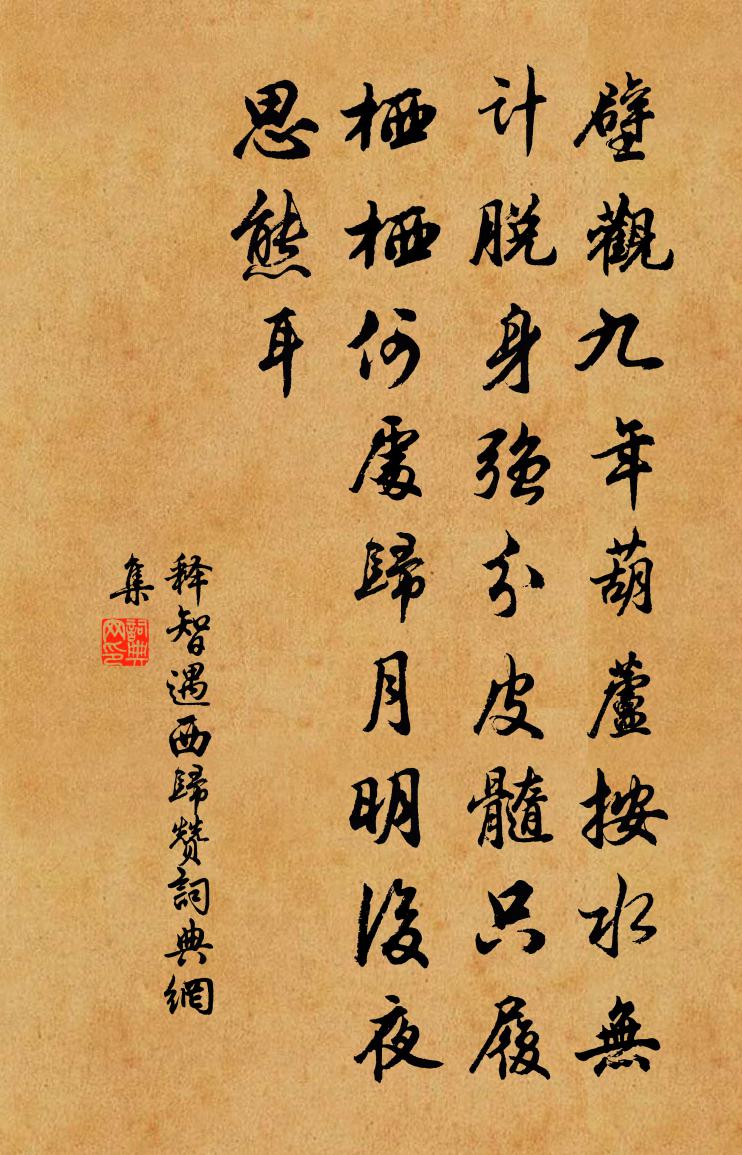 壁觀九年葫蘆按水無
计脱身強分皮髓只履
栖栖何處歸月明後夜
思熊耳
释智遇西歸贊詞典網
集
詞典網印